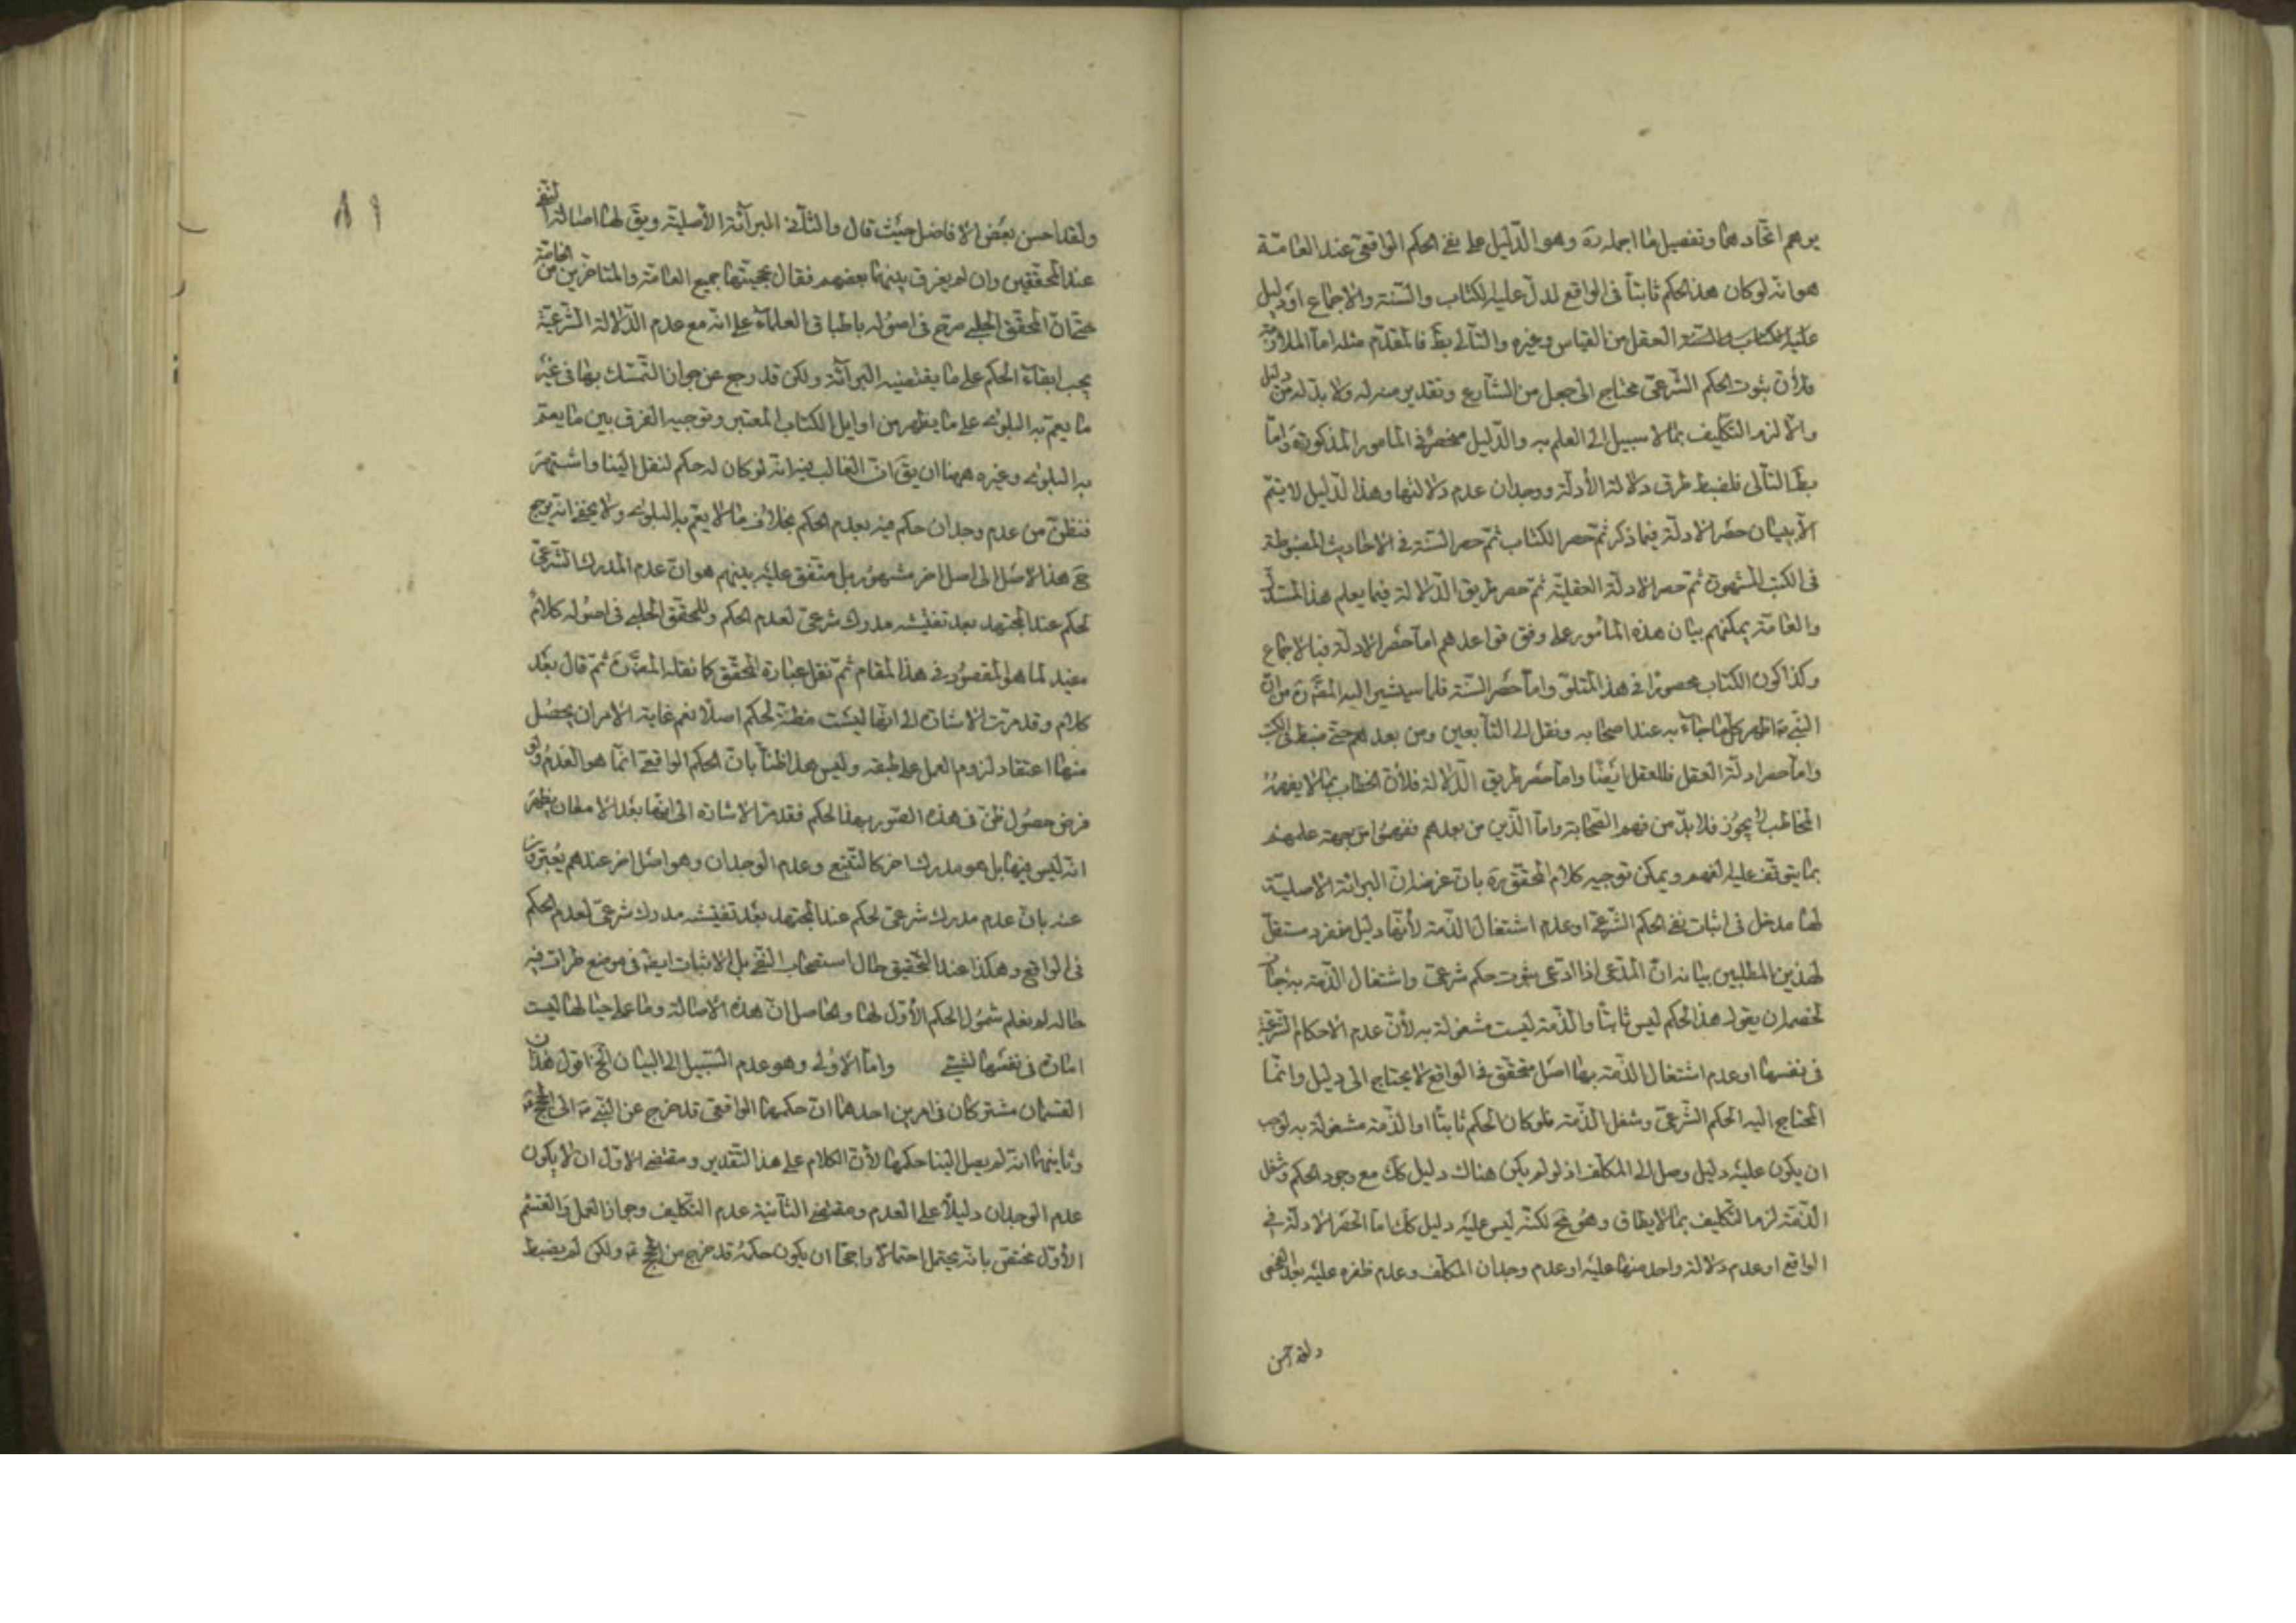 يوهم اتحادهما وتفصيل ما اجمله ره وهو الدّليل على نفى الحكم الواقعى عند العامّة
هو انّه لو كان هذا الحكم ثابتاً فى الواقع لدلّ عليه الكتاب والسّنة والاجماع او دليل
عليه العقل من القياس وغيره والتّالى بط فالمقدّم مثله امّا الملازمة
فلأنّ ثبوت الحكم الشّرعىّ محتاج الى جعل من الشّارع وتقدير منه له ولا بدّ له من دليل
والّا لزم التّكليف بما لا سبيل الى العلم به والدّليل منحصر فى المامور المذكورة وامّا
بط التّالى فلضبط طرق دلالة الأدلّة ووجدان عدم دلالتها وهذا الدّليل لا يتمّ
الّا ببيان حصر الادلّة فيما ذكر ثمّ حصر الكتاب ثمّ حصر السّنة فى الاحاديث المضبوطة
فى الكتب المشهورة ثمّ حصر الادلّة العقليّة ثمّ حصر طريق الدّلالة فيما يعلم هذا المستدلّ
والعامّة يمكنهم بيان هذه المامور على وفق قواعدهم امّا حصر الادلّة فبالاجماع
وكذا كون الكتاب محصورا فى هذا المتلوّ وامّا حصر السّنة فلما سيشير اليه المصّ ره من انّ
النّبى ص اظهر كلّ ما جاء به عند اصحابه ونقل الى التّابعين ومن بعدهم حتّى ضبط فى الكتب
وامّا حصر ادلّة العقل فللعقل ايضا وامّا حصر طريق الدّلالة فلأنّ الخطاب بما لا يفهمه
المخاطب لا يجوز فلا بدّ من فهم الصّحابة وامّا الّذين من بعدهم ففهموا من جهة علمهم
بما يتوقّف عليه الفهم ويمكن توجيه كلام المحقّق ره بانّ غرضه انّ البرائة الاصليّة
لها مدخل فى اثبات نفى الحكم الشّرعىّ او عدم اشتغال الذّمة لأنّها دليل منفرد مستقلّ
لهذين المطلبين بيانه انّ المدّعى اذا ادّعى ثبوت حكم شرعىّ واشتغال الذّمة به جاز
لخصمه ان يقول هذا الحكم ليس ثابتا والذّمة ليست مشغولة به لأنّ عدم الاحكام الشّرعيّة
فى نفسها او عدم اشتغال الذّمة بها اصل متحقّق فى الواقع لا يحتاج الى دليل وانّما
المحتاج اليه الحكم الشّرعىّ وشغل الذّمة فلو كان الحكم ثابتا او الذّمة مشغولة به لوجب
ان يكون عليه دليل وصل الى المكلّف اذ لو لم يكن هناك دليل كك مع وجود الحكم وشغل
الذّمّة لزم التّكليف بما لا يطاق وهو مح لكنّه ليس عليه دليل كك امّا الحصر الادلّة فى
الواقع او عدم دلالة واحد منها عليه او عدم وجدان المكلّف وعدم ظفره عليه بعد الفحص
ولقد احسن
ولقد احسن بعض الافاضل حيث قال والثّانى البرآئة الأصليّة ويق لها اصالة النّفى
عند المحقّقين وان لم يفرق بينهما بعضهم فقال بحجيتها جميع العامّة والمتاخّرين من الخاصّة
حتّى انّ المحقّق الحلّى صرّح فى اصوله باطباق العلماء على انّه مع عدم الدّلالة الشّرعيّة
يجب ابقاء الحكم على ما يقتضيه البرآئة ولكن قد رجع عن جواز التّمسّك بها فى غير
ما يعمّ به البلوى على ما يظهر من اوايل الكتاب المعتبر وتوجيه الفرق بين ما يعمّ
به البلوى وغيره ههنا ان يق انّ الغالب فيه انّه لو كان له حكم لنقل الينا واشتهر
فنظنّ من عدم وجدان حكم فيه بعدم الحكم بخلاف ما لا يعمّ به البلوى ولا يخفى انّه يرجع
ح هذا الاصل الى اصل اخر مشهور بل متّفق عليه بينهم هو انّ عدم المدرك الشّرعىّ
لحكم عند المجتهد بعد تفتيشه مدرك شرعىّ لعدم الحكم وللمحقّق الحلّى فى اصوله كلام
مفيد لما هو المقصود فى هذا المقام ثمّ نقل عبارة المحقّق كما نقله المصّ ره ثمّ قال بعد
كلام وقد مرّت الاشارة الى انّها ليست مظنّة لحكم اصلا نعم غاية الامر ان يحصل
منها اعتقاد لزوم العمل على طبقه وليس هذا ظنّا بانّ الحكم الواقعى انّما هو العدم ولو
فرض حصول ظنّ فى هذه الصّور بهذا الحكم فقد مرّ الاشارة الى انّها بعد الامعان يظهر
انّه ليس فيها بل هو مدرك اخر كالتّتبّع وعدم الوجدان وهو اصل اخر عندهم يعبّرون
عنه بانّ عدم مدرك شرعىّ لحكم عند المجتهد بعد تفتيشه مدرك شرعىّ لعدم الحكم
فى الواقع وهكذا عند التّحقيق حال استصحاب النّفى بل الاثبات ايضا فى موضع طرات فيه
حالة لم نعلم شمول الحكم الأوّل لها والحاصل انّ هذه الاصالة وما على حيالها ليست
امارة فى نفسها لشىء وامّا الأولى وهو عدم السّبيل الى البيان الخ اقول هذان
القسمان مشتركان فى امرين احدهما انّ حكمهما الواقعى قد خرج عن النّبى ص الى الحجج ع
وثانيهما انّه لم يصل الينا حكمهما لأنّ الكلام على هذا التّقدير ومقتضى الاوّل ان لا يكون
عدم الوجدان دليلا على العدم ومقتضى الثّانية عدم التّكليف وجواز العمل والقسم
الأوّل مختصّ بانّه يحتمل احتمالا راجحا ان يكون حكمه قد خرج من الحجج ع ولكن لم يضبط